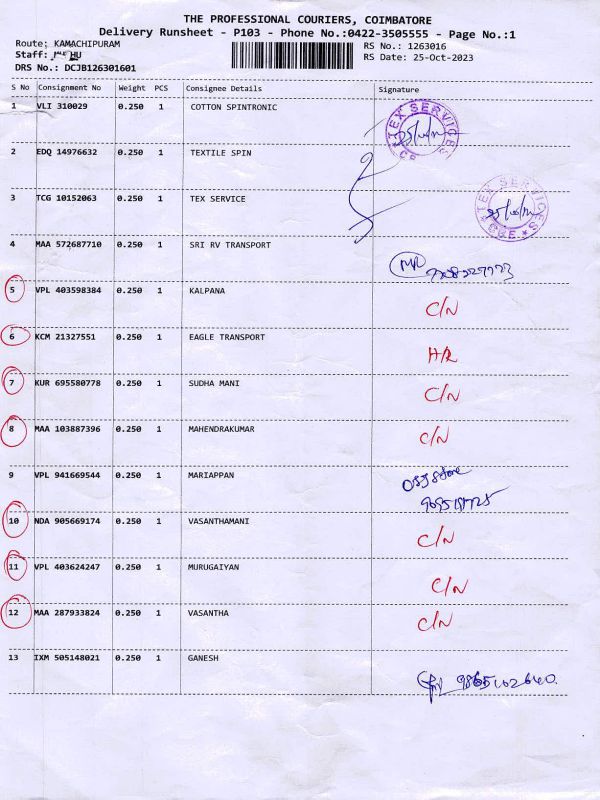 THE PROFESSIONAL COURIERS, COIMBATORE
Delivery Runsheet - P103 - Phone No.:0422-3505555 - Page No.:1
Route: KAMACHIPURAM RS No.: 1263016
Staff: RS Date: 25-Oct-2023
DRS No.: DCJB126301601
S No Consignment No Weight PCS Consignee Details Signature
1 VLI 310029 0.250 1 COTTON SPINTRONIC TEX SERVICES
2 EDQ 14976632 0.250 1 TEXTILE SPIN
3 TCG 10152063 0.250 1 TEX SERVICE TEX SERVICES CBE
4 MAA 572687710 0.250 1 SRI RV TRANSPORT
5 VPL 403598384 0.250 1 KALPANA C/N
6 KCM 21327551 0.250 1 EAGLE TRANSPORT
7 KUR 695580778 0.250 1 SUDHA MANI C/N
8 MAA 103887396 0.250 1 MAHENDRAKUMAR C/N
9 VPL 941669544 0.250 1 MARIAPPAN
10 NDA 905669174 0.250 1 VASANTHAMANI C/N
11 VPL 403624247 0.250 1 MURUGAIYAN C/N
12 MAA 287933824 0.250 1 VASANTHA C/N
13 IXM 505148021 0.250 1 GANESH
9865102640